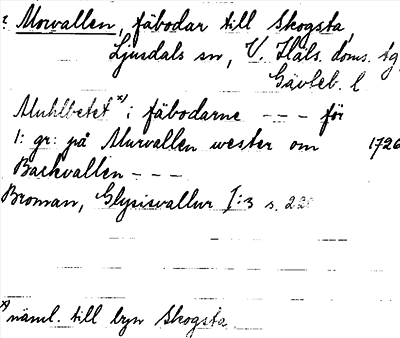 ? Morvallen, fäbodar till Skogsta,
Ljusdals sn, V. Häls. doms. tg
Gävleb. l
Muhlbetet x) i fäbodarne - - - för
1: gr: på Murvallen wester om 1726
Backvallen - - -
Broman, Glysisvallur I:3 s.
x) näml. till byn Skogsta